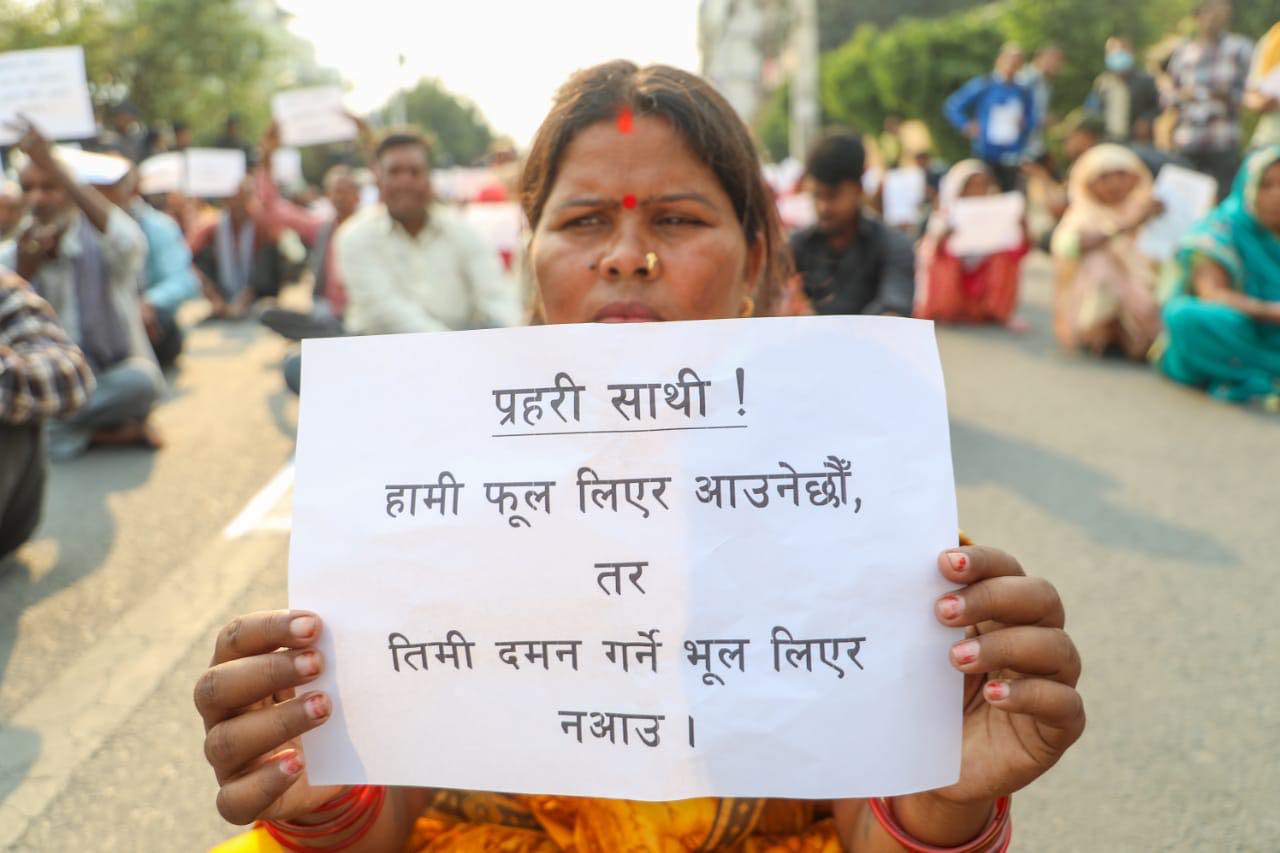 प्रहरी साथी !
हामी फूल लिएर आउनेछौँ,
तर
तिमी दमन गर्ने भूल लिएर
नआउ ।